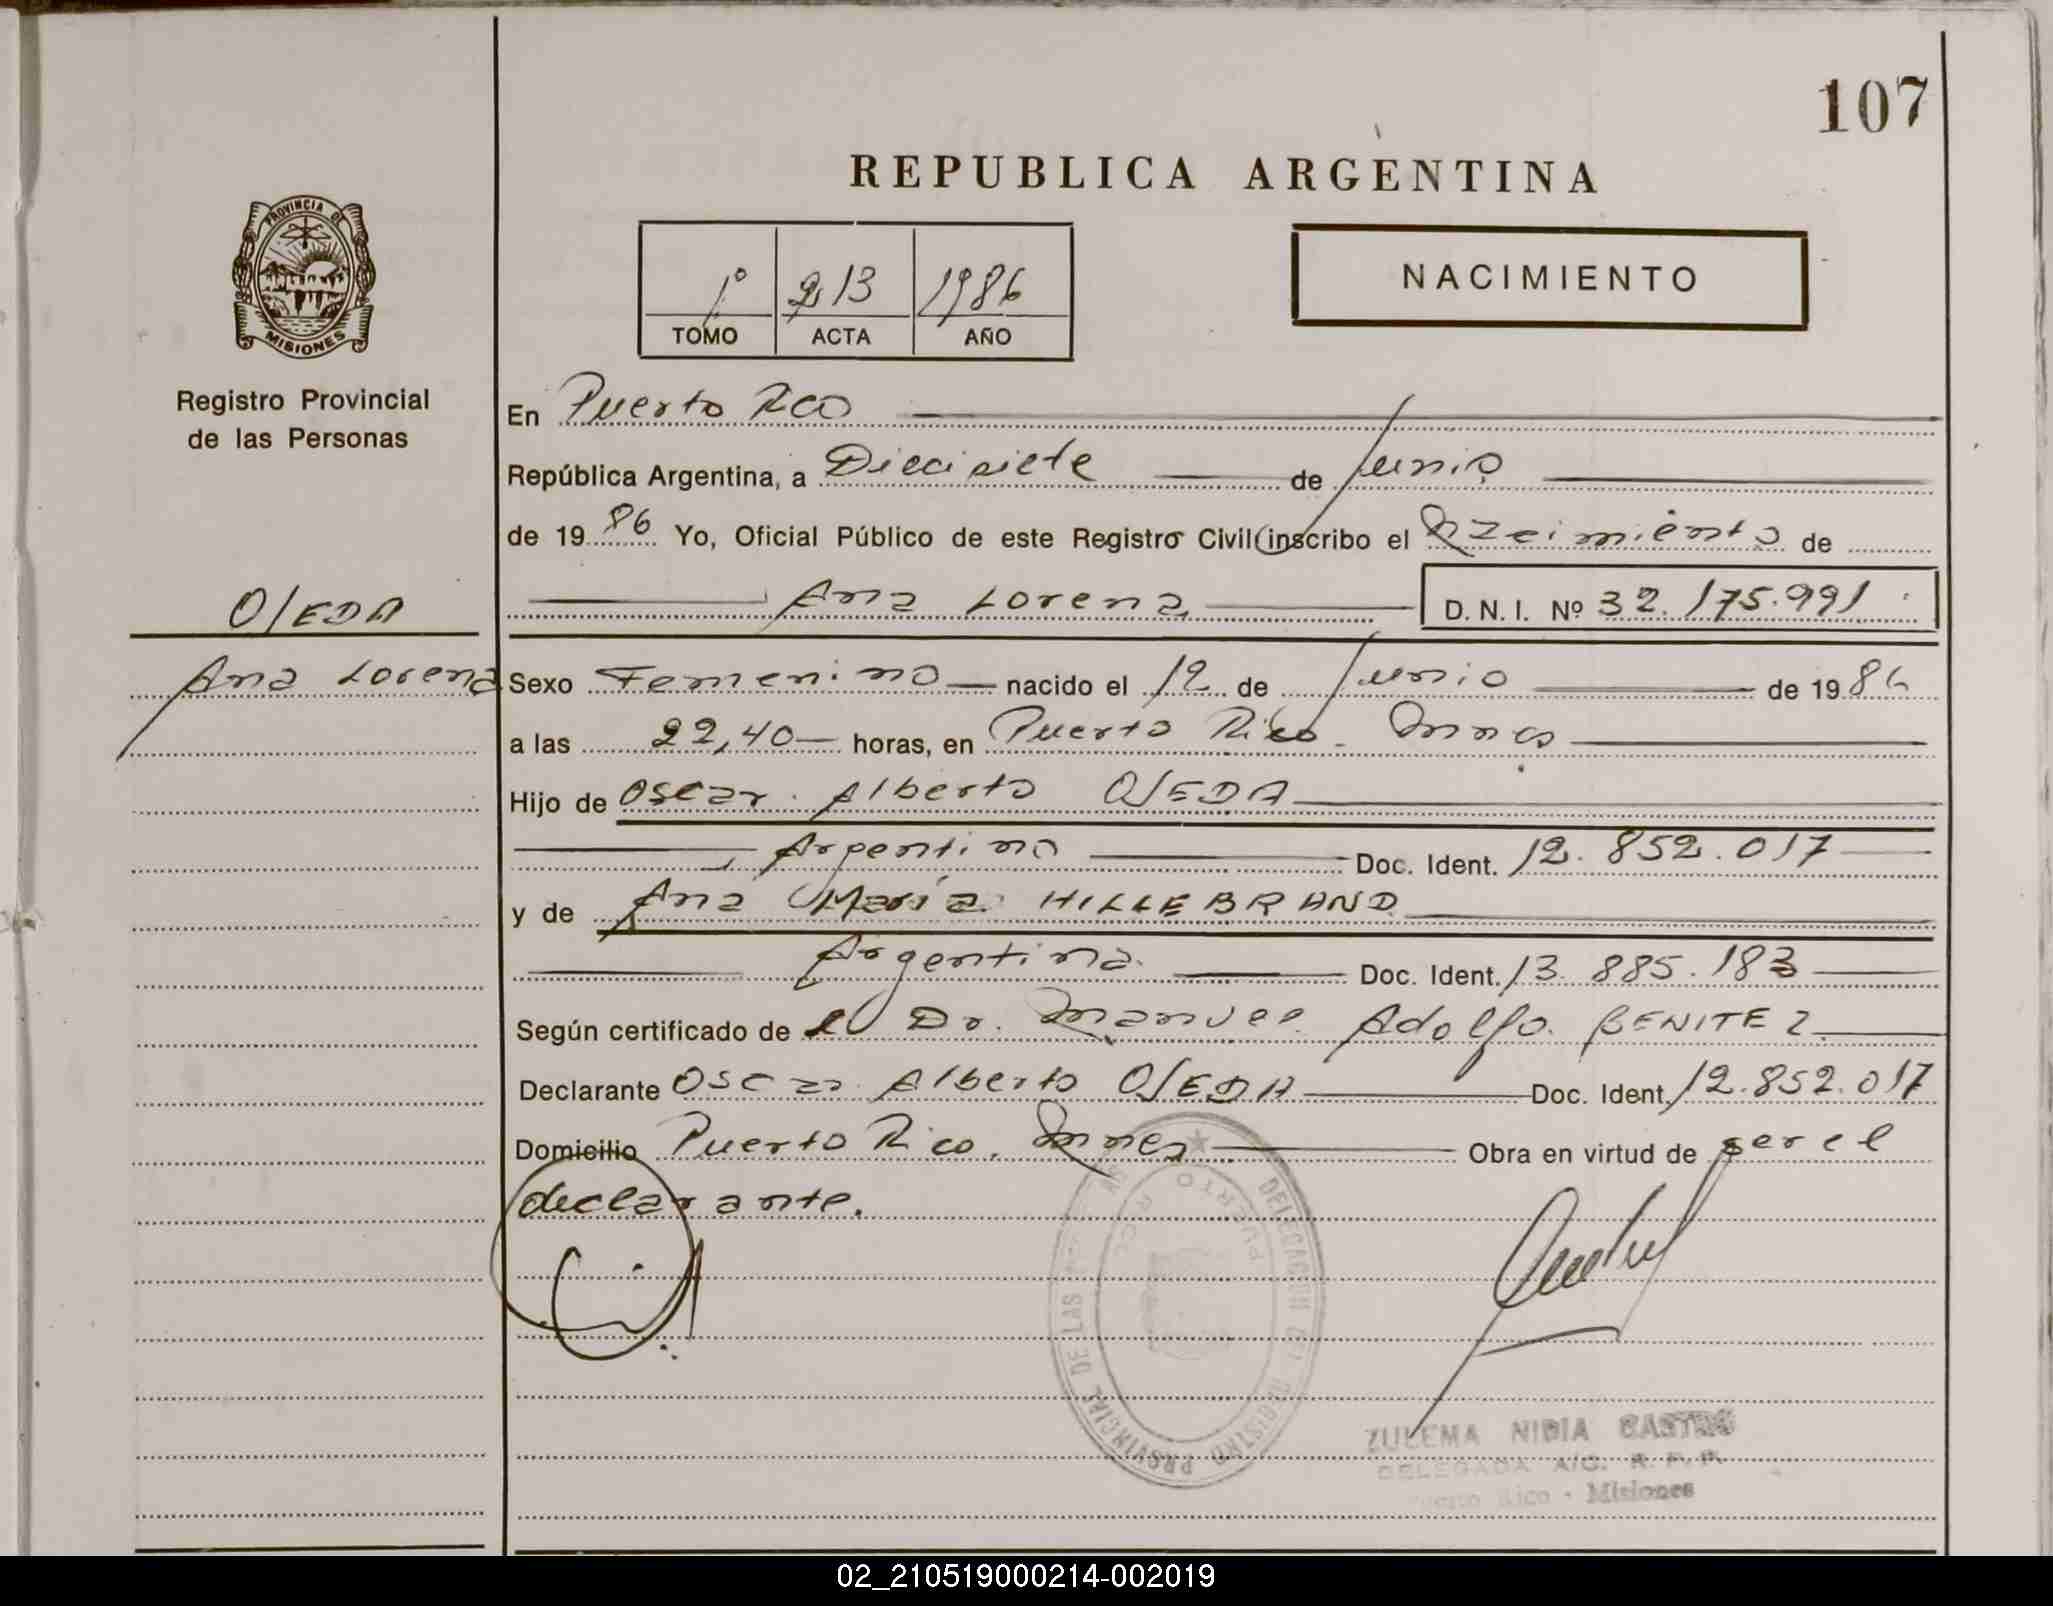 107
REPUBLICA ARGENTINA
PROVINCIA DE
MISIONES
1º 213 1986
TOMO ACTA AÑO
NACIMIENTO
Registro Provincial
de las Personas
En Puerto Rico
República Argentina, a Diecisiete de Junio
de 1986 Yo, Oficial Público de este Registro Civil inscribo el Nacimiento de
OJEDA
Ana Lorena D.N.I. Nº 32.175.991
Ana Lorena
Sexo Femenino nacido el 12 de Junio de 1986
a las 22,40 horas, en Puerto Rico - Mnes
Hijo de Oscar Alberto OJEDA
Argentino Doc. Ident. 12.852.017
y de Ana María HILLEBRAND
Argentina Doc. Ident. 13.885.183
Según certificado de el Dr. Manuel Adolfo BENITEZ
Declarante Oscar Alberto OJEDA Doc. Ident. 12.852.017
Domicilio Puerto Rico, Mnes Obra en virtud de ser el
declarante.
DELEGACION DEL REGISTRO PROVINCIAL DE LAS
PUERTO RICO
ZULEMA NIDIA CASTRO
DELEGADA A/C. R. P. P.
Puerto Rico - Misiones
02_210519000214-002019